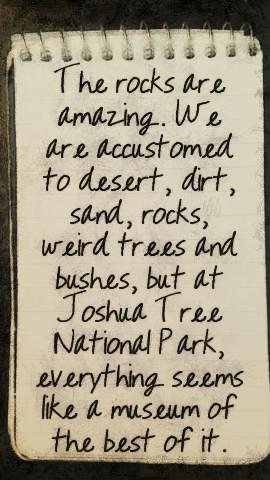 The rocks are
amazing. We
are accustomed
to desert, dirt,
sand, rocks,
weird trees and
bushes, but at
Joshua Tree
National Park,
everything seems
like a museum of
the best of it.